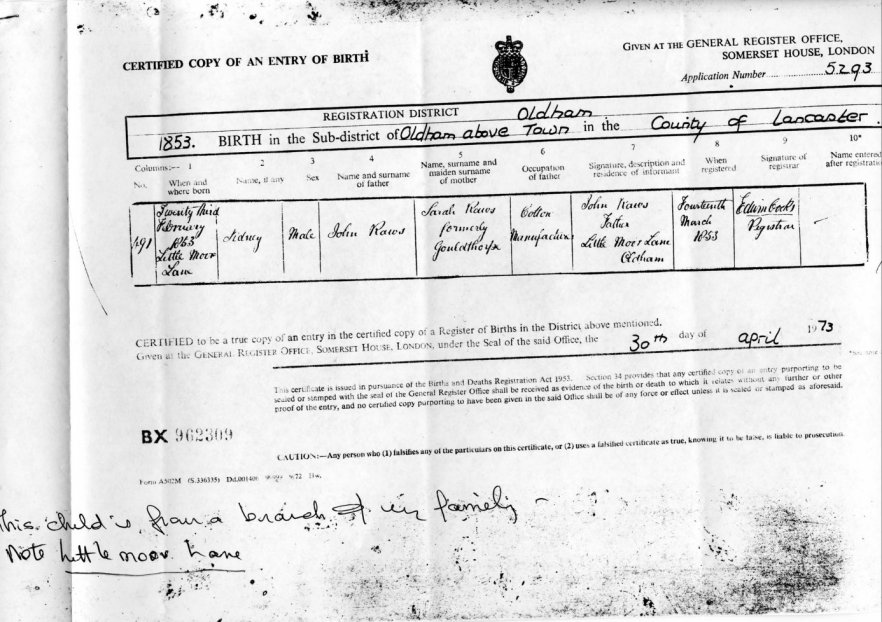 CERTIFIED COPY OF AN ENTRY OF BIRTH
GIVEN AT THE GENERAL REGISTER OFFICE,
SOMERSET HOUSE, LONDON
Application Number 5293
REGISTRATION DISTRICT Oldham
1853. BIRTH in the Sub-district of Oldham above Town in the County of Lancaster.
Columns:— 1 2 3 4 5 6 7 8 9 10*
No. When and where born
Name, if any
Sex
Name and surname of father
Name, surname and maiden surname of mother
Occupation of father
Signature, description and residence of informant
When registered
Signature of registrar
Name entered after registration
491
Twenty third
February
1853
Little Moor
Lane
Sidney
Male
John Kaws
Sarah Kaws
formerly
Gouldthorpe
Cotton
Manufacturer
John Kaws
Father
Little Moor Lane
Oldham
Fourteenth
March
1853
Edwin Cocks
Registrar
—
CERTIFIED to be a true copy of an entry in the certified copy of a Register of Births in the District above mentioned.
Given at the GENERAL REGISTER OFFICE, SOMERSET HOUSE, LONDON, under the Seal of the said Office, the 30th day of april 1973
This certificate is issued in pursuance of the Births and Deaths Registration Act 1953. Section 34 provides that any certified copy of an entry purporting to be
sealed or stamped with the seal of the General Register Office shall be received as evidence of the birth or death to which it relates without any further or other
proof of the entry, and no certified copy purporting to have been given in the said Office shall be of any force or effect unless it is sealed or stamped as aforesaid.
BX 962309
CAUTION:—Any person who (1) falsifies any of the particulars on this certificate, or (2) uses a falsified certificate as true, knowing it to be false, is liable to prosecution
Form A502M (S.336335) Dd.001400 9/72 Hw.
This child is from a branch of my family –
Note Little moor Lane